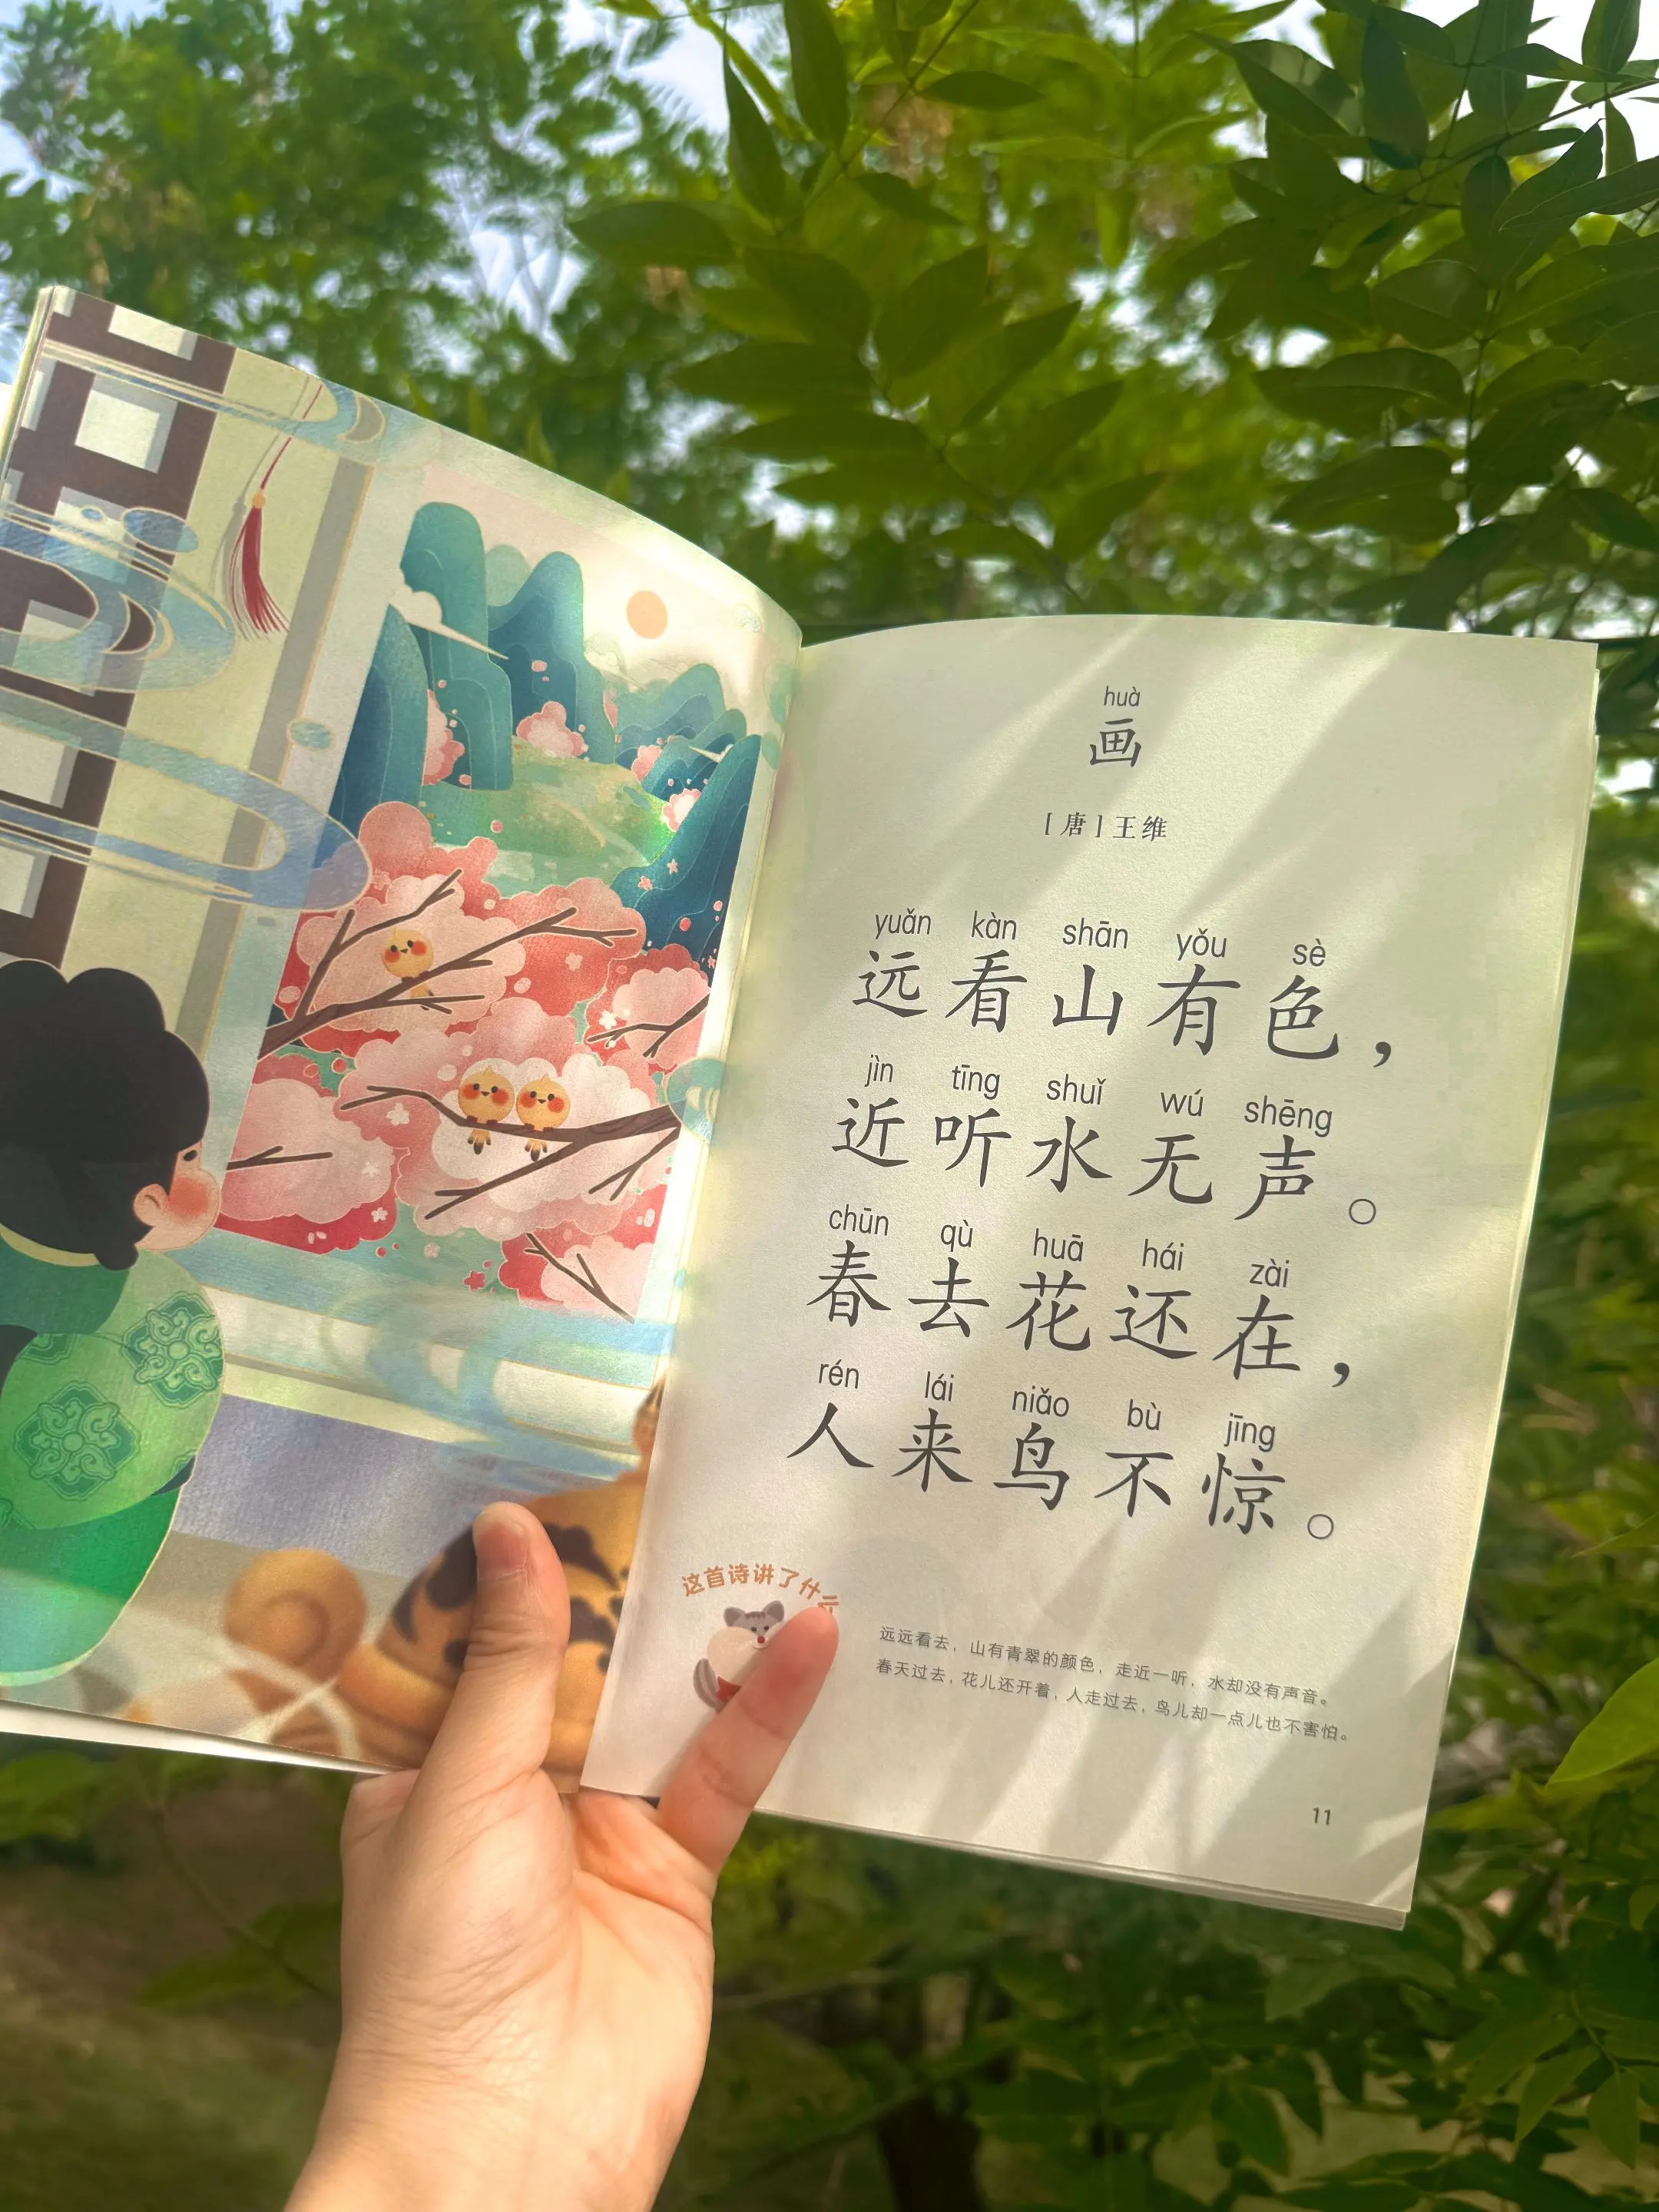 huà
画
[唐]王维
yuǎn kàn shān yǒu sè
远看山有色，
jìn tīng shuǐ wú shēng
近听水无声。
chūn qù huā hái zài
春去花还在，
rén lái niǎo bù jīng
人来鸟不惊。
这首诗讲了什么
远远看去，山有青翠的颜色，走近一听，水却没有声音。
春天过去，花儿还开着，人走过去，鸟儿却一点儿也不害怕。
11